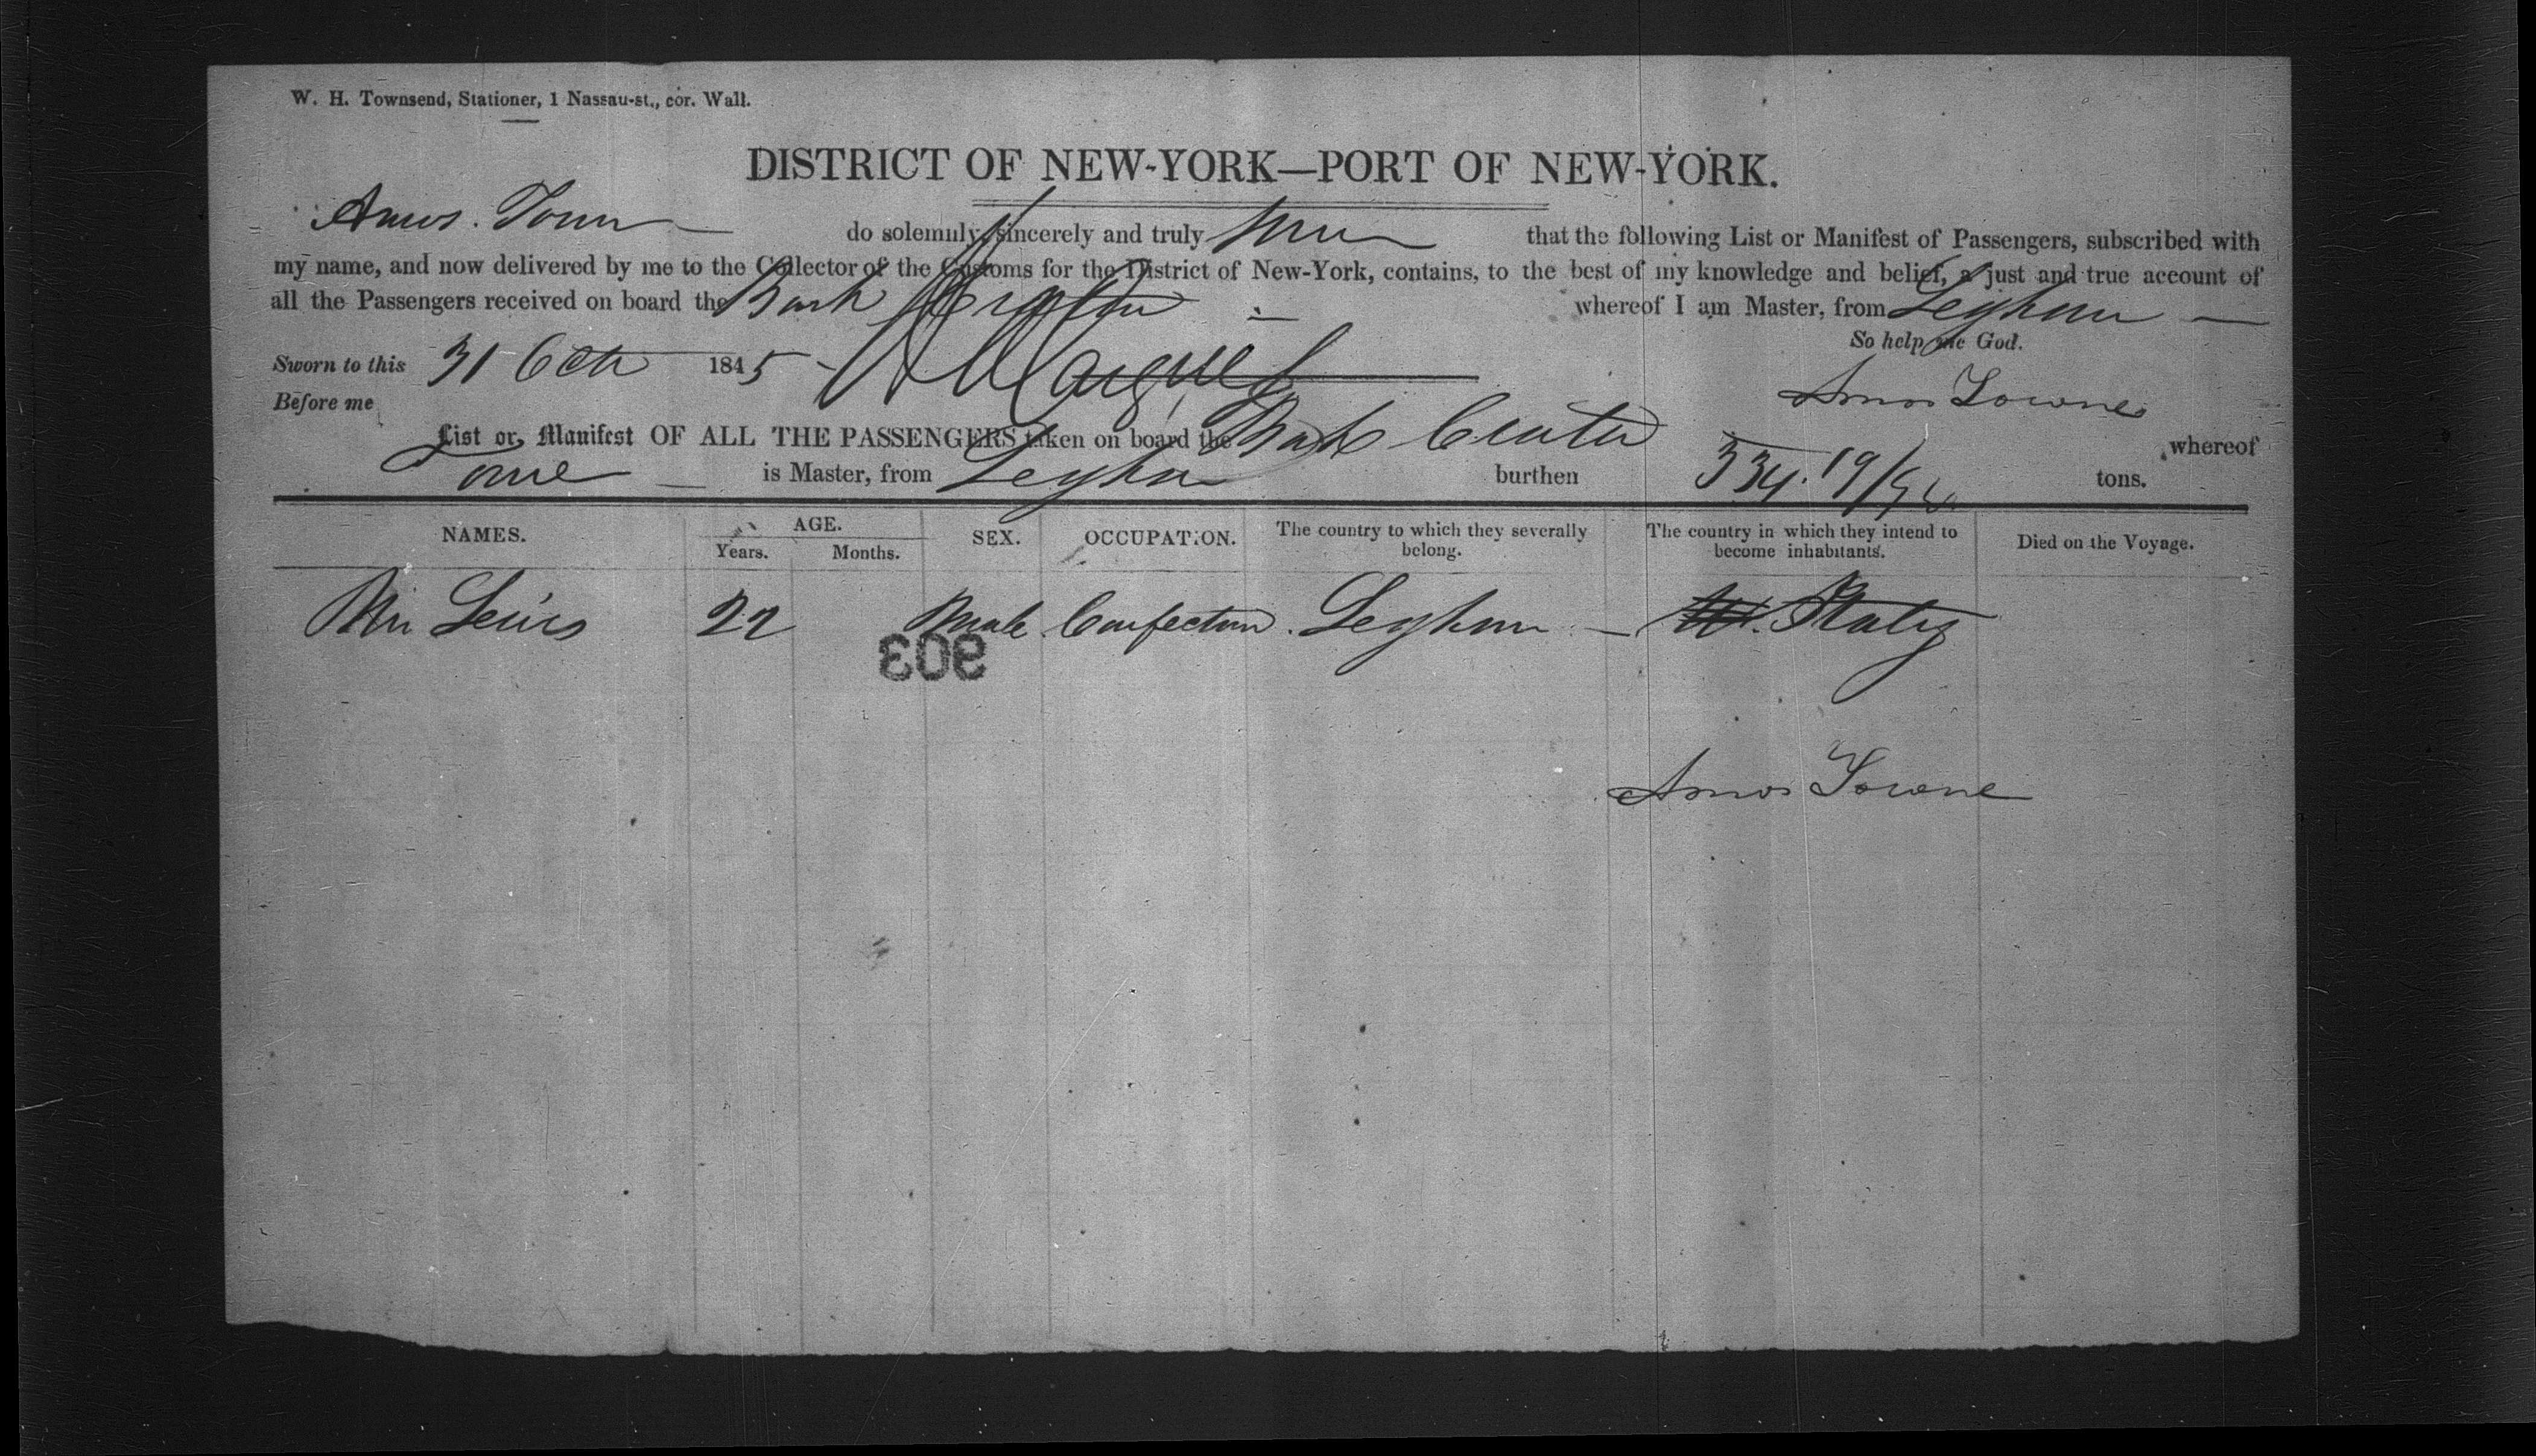 W. H. Townsend, Stationer, 1 Nassau-st., cor. Wall.
DISTRICT OF NEW-YORK—PORT OF NEW-YORK.
Amos. Town do solemnly, sincerely and truly that the following List or Manifest of Passengers, subscribed with
my name, and now delivered by me to the Collector of the Customs for the District of New-York, contains, to the best of my knowledge and belief, a just and true account of
all the Passengers received on board the Bark whereof I am Master, from Leghorn
So help me God.
Sworn to this 31 Oct 1845
Amos Towne
Before me
List or Manifest OF ALL THE PASSENGERS taken on board the Bark whereof
Towne is Master, from Leghorn burthen 334. tons.
NAMES. AGE. SEX. OCCUPATION. The country to which they severally belong. The country in which they intend to become inhabitants. Died on the Voyage.
Years. Months.
Mr Lewis 22 Male Leghorn
903
Amos Towne